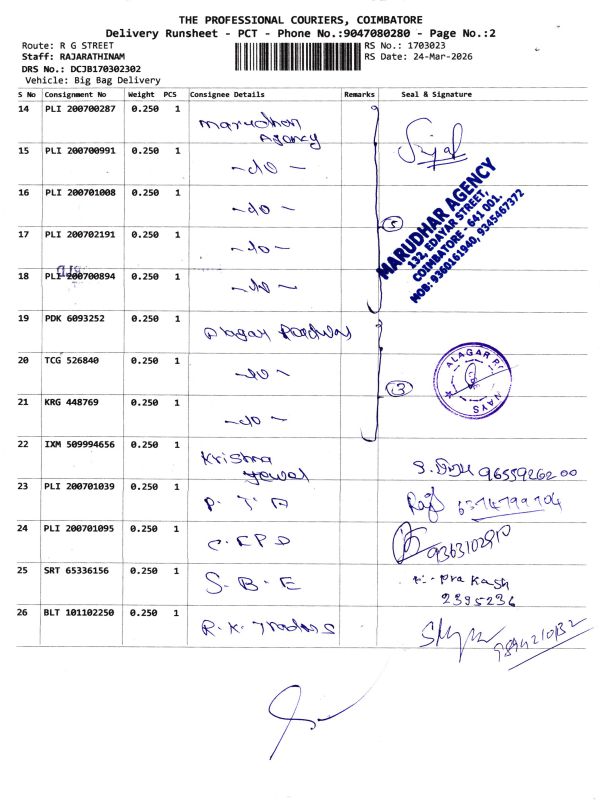 THE PROFESSIONAL COURIERS, COIMBATORE
Delivery Runsheet - PCT - Phone No.:9047080280 - Page No.:2
Route: R G STREET
RS No.: 1703023
Staff: RAJARATHINAM
RS Date: 24-Mar-2026
DRS No.: DCJB170302302
Vehicle: Big Bag Delivery
S No Consignment No Weight PCS Consignee Details Remarks Seal & Signature
14 PLI 200700287 0.250 1 Marudhar Agency
15 PLI 200700991 0.250 1 -do-
16 PLI 200701008 0.250 1 -do-
17 PLI 200702191 0.250 1 -do-
18 PLI 200700894 0.250 1 -do-
5
MARUDHAR AGENCY
132, EDAYAR STREET,
COIMBATORE - 641 001.
MOB: 9360161940, 9345467372
19 PDK 6093252 0.250 1 Alagar
20 TCG 526840 0.250 1 -do-
21 KRG 448769 0.250 1 -do-
3
ALAGAR
22 IXM 509994656 0.250 1 Krishna 9655926200
23 PLI 200701039 0.250 1 P. T. A
24 PLI 200701095 0.250 1
25 SRT 65336156 0.250 1 S. B. E Prakash
2395236
26 BLT 101102250 0.250 1 R. K. Traders